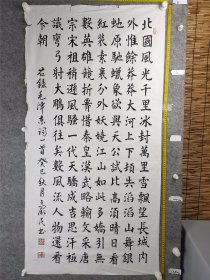 北國風光千里冰封萬里雪飄望長城內
外惟餘莽莽大河上下頓失滔滔山舞銀
虵原馳蠟象欲與天公試比高須晴日看
紅裝素裹分外妖嬈江山如此多嬌引無
數英雄競折腰惜秦皇漢武略輸文采唐
宗宋祖稍遜風騷一代天驕成吉思汗
識彎弓射大鵰俱往矣數風流人物還看
今朝
右錄毛澤東詞一首癸巳秋月書